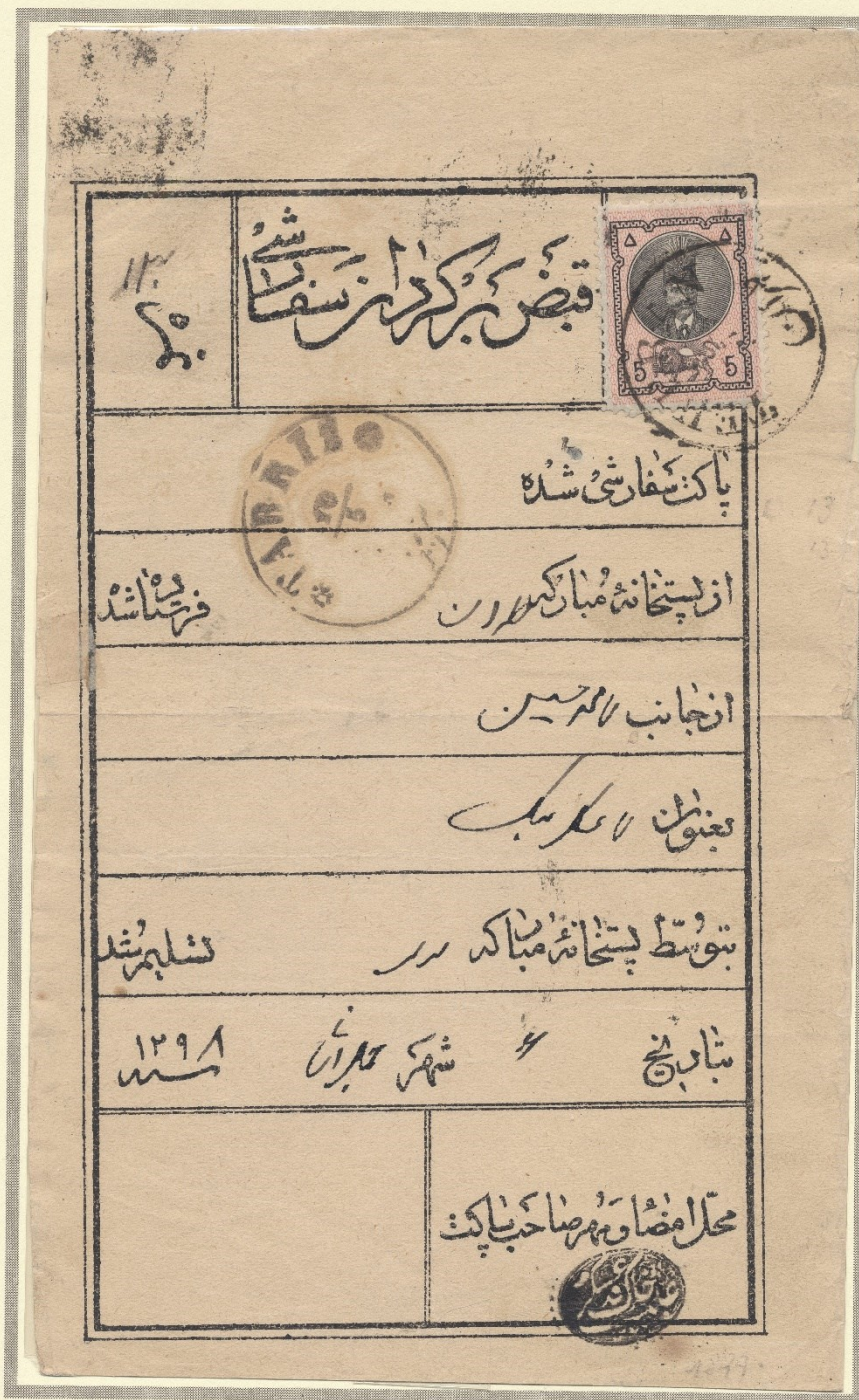 قبض برگردان سفارشی
۱۳
نمره
۵ ۵
5 5
TABRIZ
پاکت سفارشی شده
از پستخانهٔ مبارکه طهران فرستاده شد
از جانب محمد حسین
بعنوان
بتوسّط پستخانهٔ مبارکه تسلیم شد
بتاریخ ۶ شهر سنه ۱۲۹۸
محلّ امضا و مهر صاحب پاکت